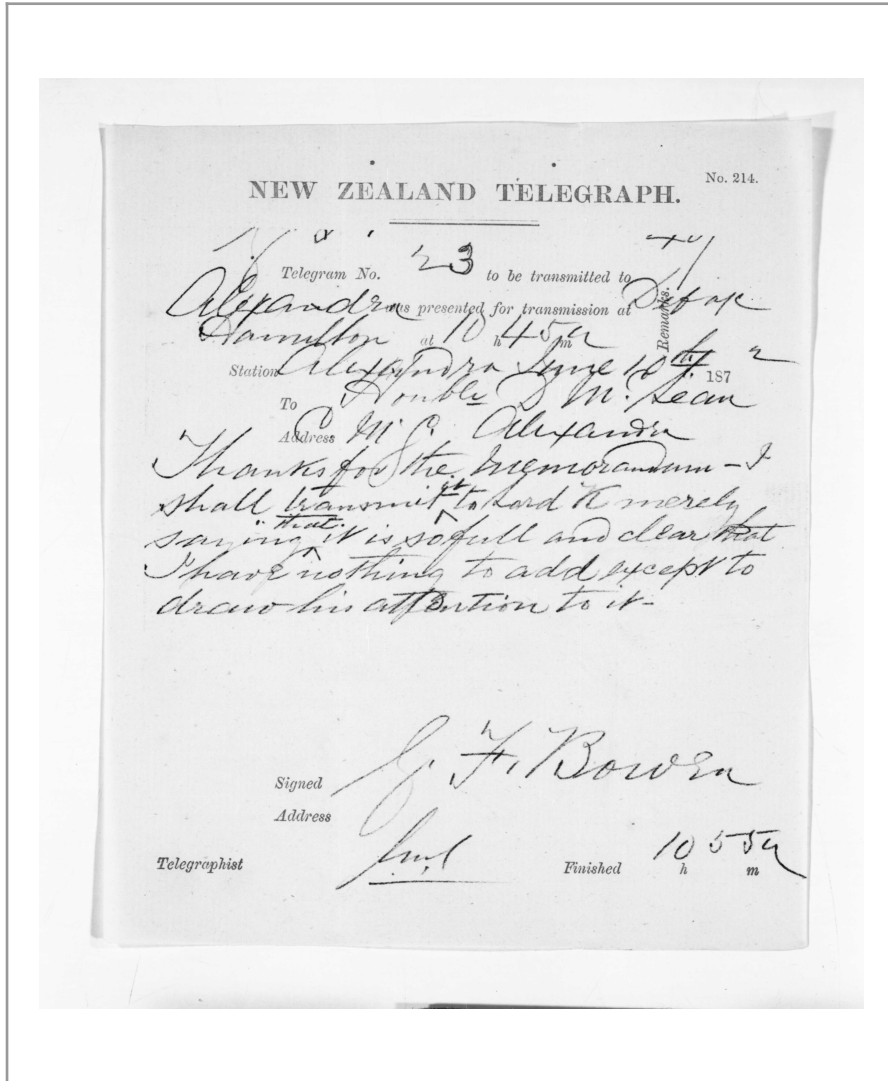 No. 214.
NEW ZEALAND TELEGRAPH.
Telegram No. 23 to be transmitted to
Alexandra was presented for transmission at
Remarks.
Hamilton at 10 h 45 m
Station Alexandra June 10th 1872
To Honble D McLean
Address Alexandra
Thanks for the memorandum - I
shall transmit it to Lord K merely
saying "that" it is so full and clear that
I have nothing to add except to
draw his attention to it -
Signed G. F. Bowen
Address
Telegraphist Finished 10 h 55 m